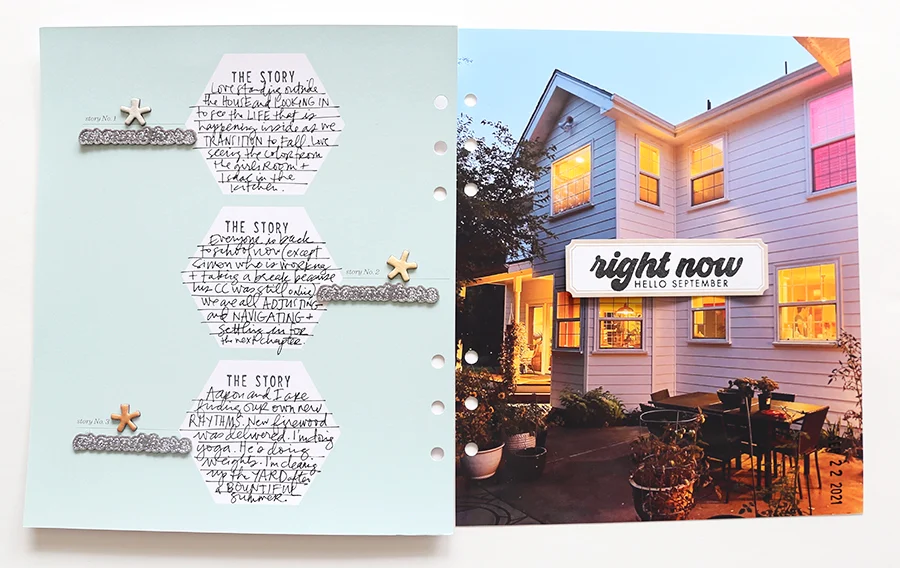 THE STORY
Love standing outside
the HOUSE and LOOKING IN
to see the LIFE that is
happening inside as we
TRANSITION to Fall. Love
seeing the color from
the girls Room +
Isaac in the
kitchen.
story No. 1
THE STORY
Everyone is back
to school now (except
Simon who is working
+ taking a break because
his CC was still online)
we are all ADJUSTING
and NAVIGATING +
settling in for
the next chapter.
story No. 2
THE STORY
Aaron and I are
finding our own new
RHYTHMS. New firewood
was delivered. I'm doing
yoga. He is doing
weights. I'm cleaning
up the YARD after
a BOUNTIFUL
summer.
story No. 3
right now
HELLO SEPTEMBER
22 2021